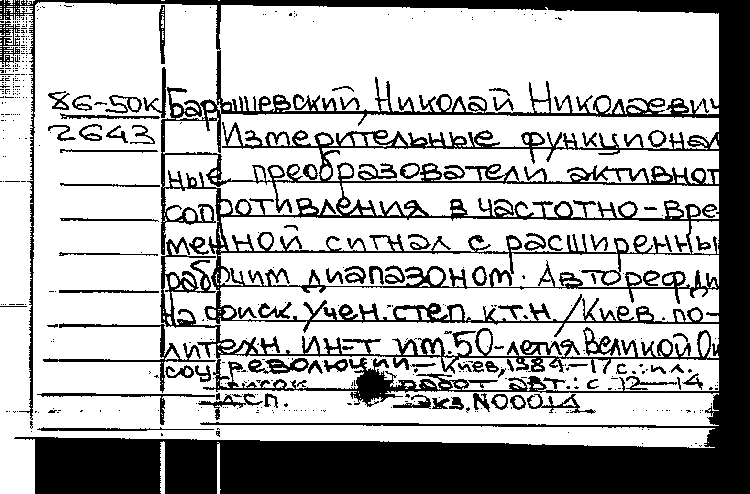 86-50к Барышевский, Николай Николаевич
2643 Измерительные функционал
ные преобразователи активног
сопротивления в частотно-вре-
менной сигнал с расширенны
рабочим диапазоном: Автореф.ди
на соиск. учен. степ. к.т.н. /Киев. по-
литехн. ин-т им. 50-летия Великой Ок
соц. революции.- Киев, 1984.-17 с.: ил.
Список работ авт.: с 12-14.
ДСП. Экз. N00014